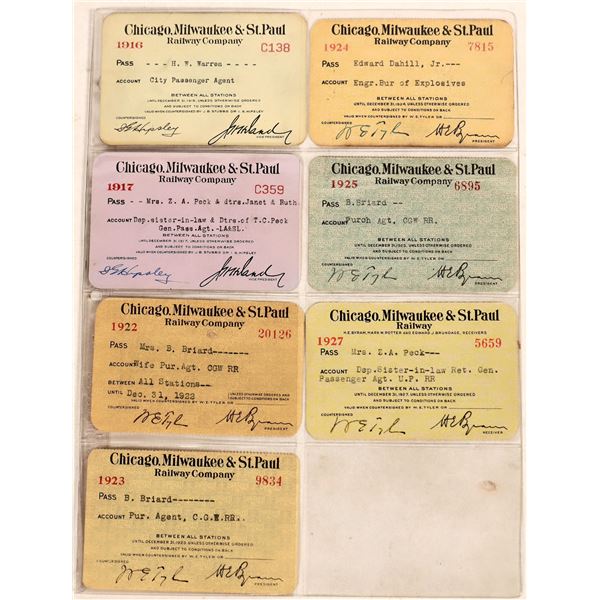 Chicago, Milwaukee & St. Paul
Railway Company
1916 C138
PASS - - - H. W. Warren - - - -
ACCOUNT City Passenger Agent
BETWEEN ALL STATIONS
UNTIL DECEMBER 31, 1916, UNLESS OTHERWISE ORDERED
AND SUBJECT TO CONDITIONS ON BACK
VALID WHEN COUNTERSIGNED BY J. B. STUBBS OR I. G. HIPSLEY
COUNTERSIGNED
VICE PRESIDENT
Chicago, Milwaukee & St. Paul
Railway Company
1924 7815
PASS Edward Dahill, Jr.---
ACCOUNT Engr.Bur of Explosives
BETWEEN ALL STATIONS
UNTIL DECEMBER 31, 1924, UNLESS OTHERWISE ORDERED
AND SUBJECT TO CONDITIONS ON BACK
COUNTERSIGNED
W E Tyler H E Byram
PRESIDENT
Chicago, Milwaukee & St. Paul
Railway Company
1917 C359
PASS - - Mrs. Z. A. Peck & dtrs. Janet & Ruth
ACCOUNT Dep.sister-in-law & Dtrs.of T.C.Peck
Gen.Pass.Agt.-LA&SL.
BETWEEN ALL STATIONS
UNTIL DECEMBER 31, 1917, UNLESS OTHERWISE ORDERED
AND SUBJECT TO CONDITIONS ON BACK
VALID WHEN COUNTERSIGNED BY J. B. STUBBS OR I. G. HIPSLEY
COUNTERSIGNED
VICE PRESIDENT
Chicago, Milwaukee & St. Paul
Railway Company
1925 6895
PASS B.Briard --
ACCOUNT Purch Agt. CGW RR.
BETWEEN ALL STATIONS
UNTIL DECEMBER 31, 1925, UNLESS OTHERWISE ORDERED
AND SUBJECT TO CONDITIONS ON BACK
COUNTERSIGNED
W E Tyler H E Byram
PRESIDENT
Chicago, Milwaukee & St. Paul
Railway Company
1922 20126
PASS Mrs. B. Briard-------
ACCOUNT Wife Pur.Agt. CGW RR
BETWEEN All Stations--
UNTIL Dec. 31, 1922 UNLESS OTHERWISE ORDERED
AND SUBJECT TO CONDITIONS ON BACK
VALID WHEN COUNTERSIGNED BY W. E. TYLER
COUNTERSIGNED
W E Tyler H E Byram
PRESIDENT
Chicago, Milwaukee & St. Paul
Railway Company
H.E. BYRAM, MARK W. POTTER AND EDWARD J. BRUNDAGE, RECEIVERS
1927 5659
PASS Mrs. Z.A. Peck--
ACCOUNT Dep.Sister-in-law Ret. Gen.
Passenger Agt. U.P. RR
BETWEEN ALL STATIONS
UNTIL DECEMBER 31, 1927, UNLESS OTHERWISE ORDERED
AND SUBJECT TO CONDITIONS ON BACK
VALID WHEN COUNTERSIGNED BY W. E. TYLER
COUNTERSIGNED
W E Tyler H E Byram
RECEIVER
Chicago, Milwaukee & St. Paul
Railway Company
1923 9834
PASS B. Briard--------
ACCOUNT Pur. Agent, C.G.W.RR.
BETWEEN ALL STATIONS
UNTIL DECEMBER 31, 1923, UNLESS OTHERWISE ORDERED
AND SUBJECT TO CONDITIONS ON BACK
COUNTERSIGNED
W E Tyler H E Byram
PRESIDENT